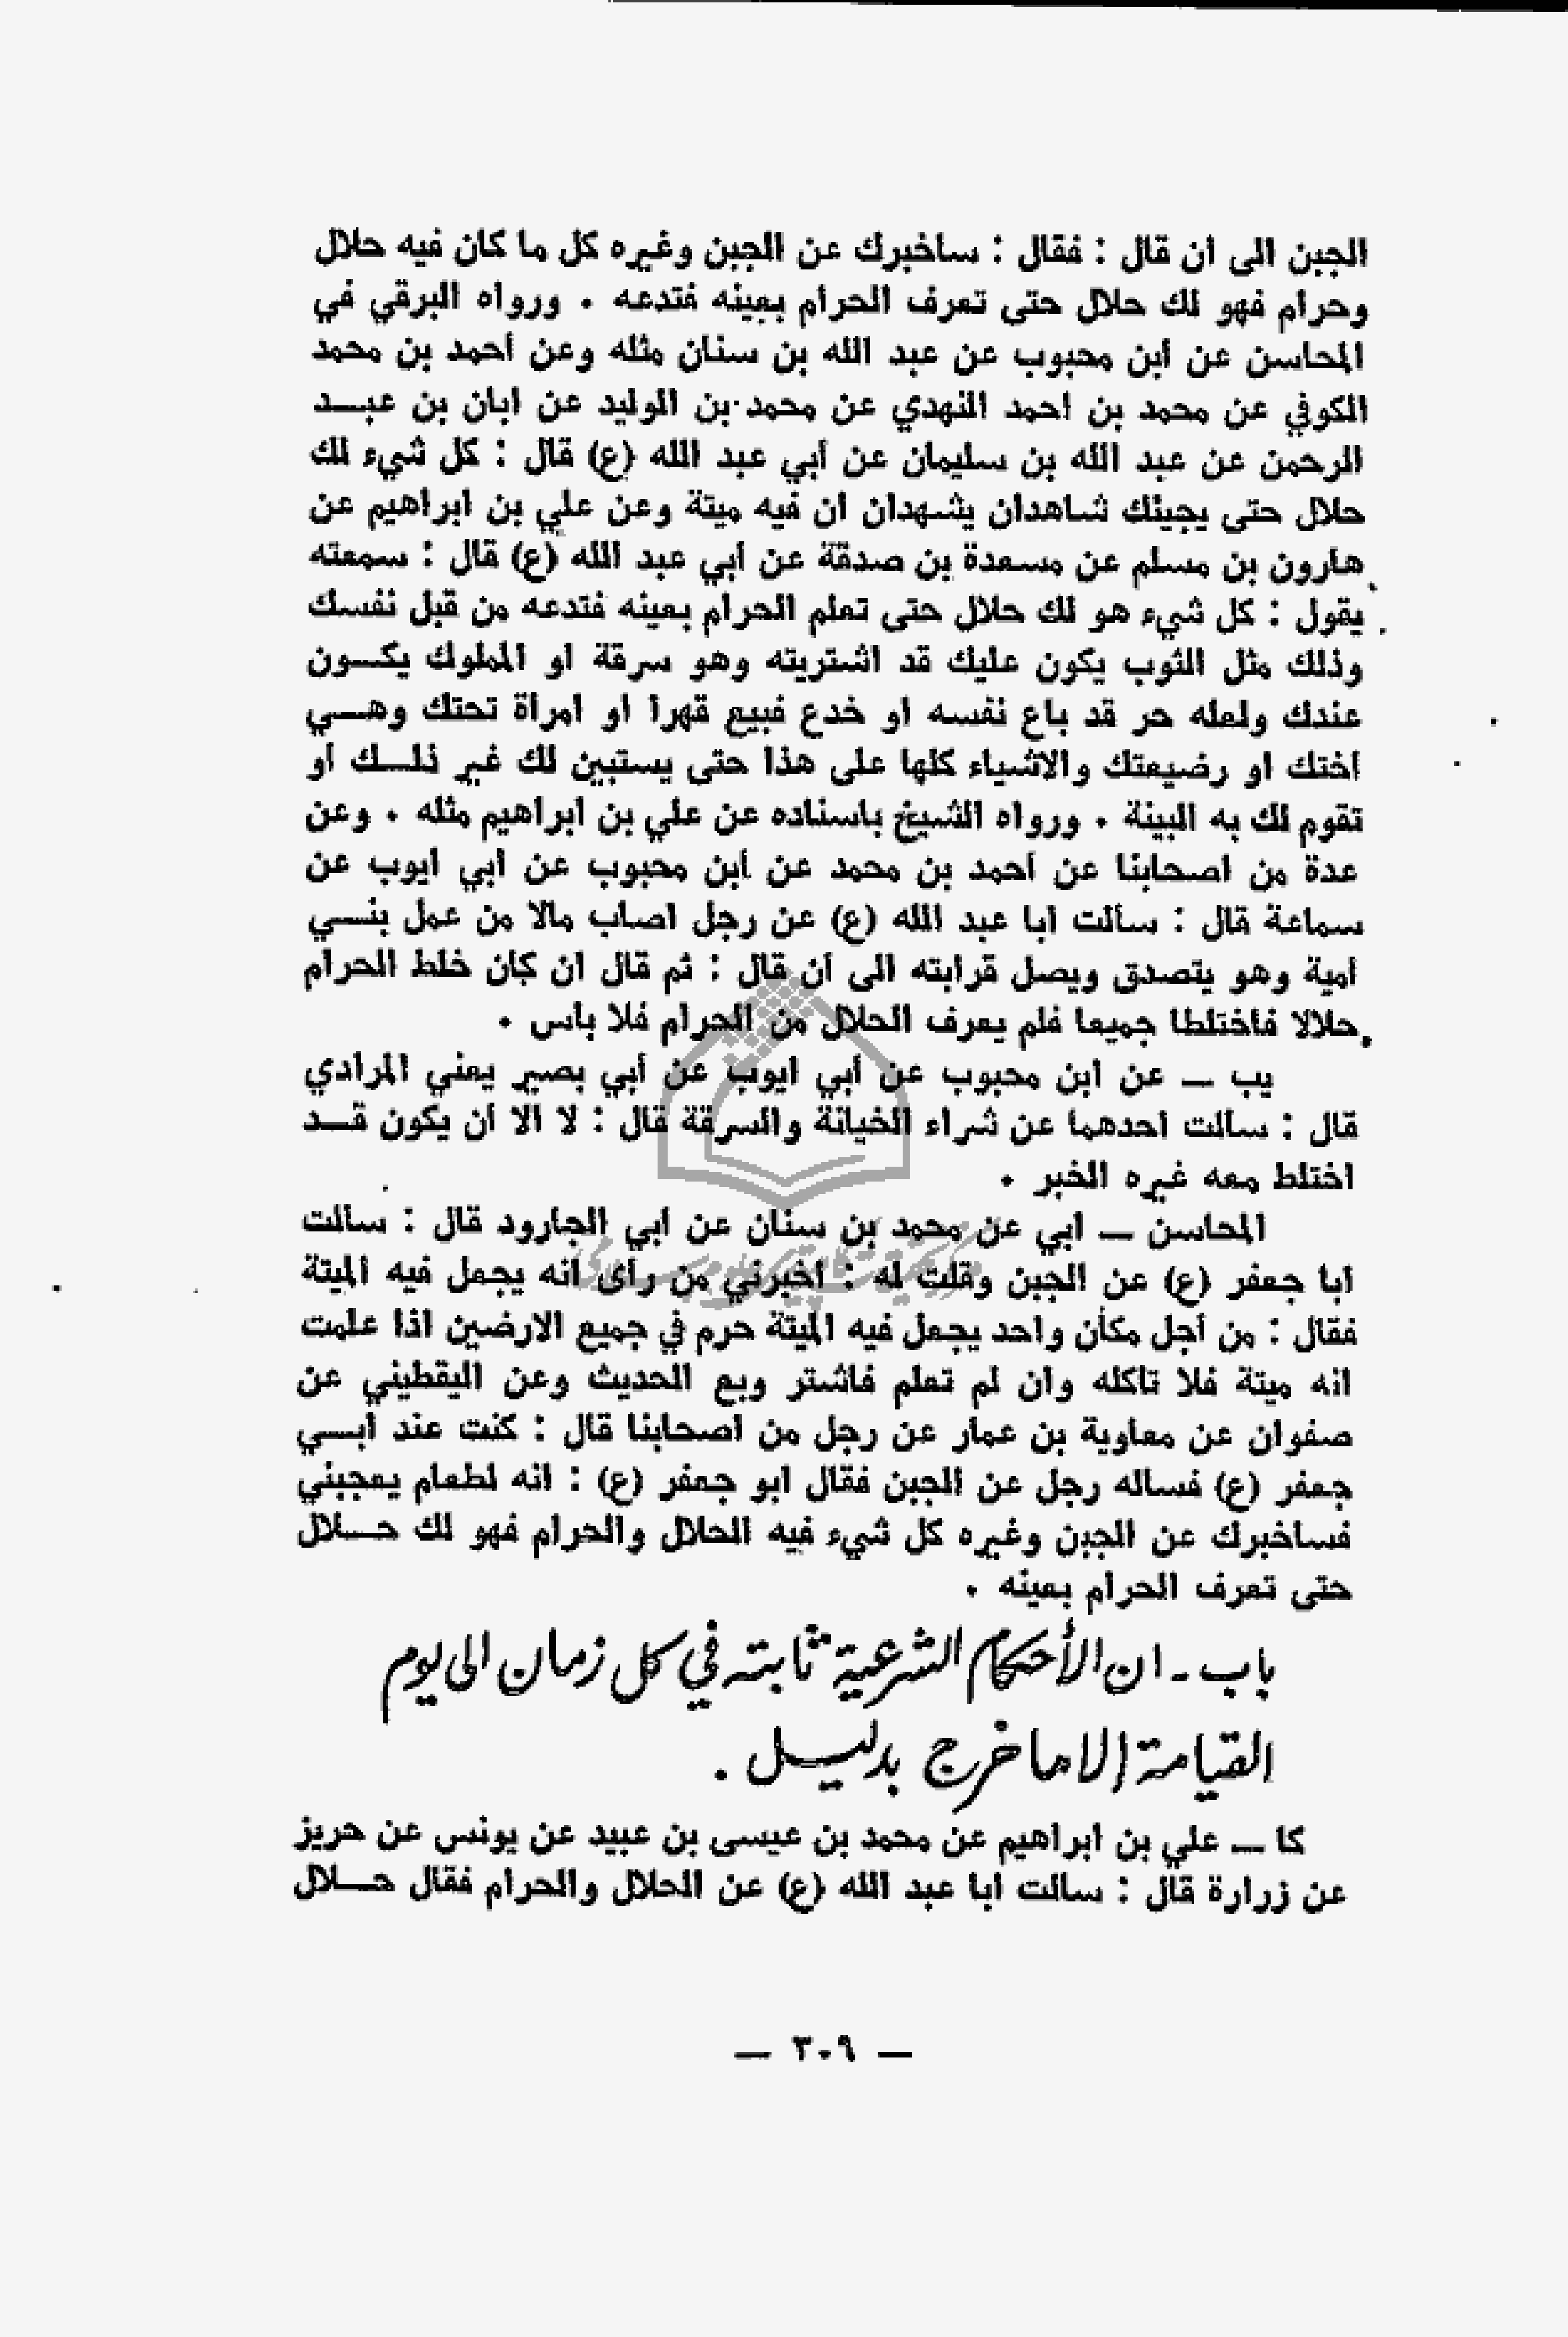 الجبن الى أن قال : فقال : ساخبرك عن الجبن وغيره كل ما كان فيه حلال
وحرام فهو لك حلال حتى تعرف الحرام بعينه فتدعه ٠ ورواه البرقي في
المحاسن عن أبن محبوب عن عبد الله بن سنان مثله وعن أحمد بن محمد
الكوفي عن محمد بن احمد النهدي عن محمد بن الوليد عن ابان بن عبـــد
الرحمن عن عبد الله بن سليمان عن أبي عبد الله (ع) قال : كل شيء لك
حلال حتى يجيئك شاهدان يشهدان ان فيه ميتة وعن علي بن ابراهيم عن
هارون بن مسلم عن مسعدة بن صدقة عن ابي عبد الله (ع) قال : سمعته
يقول : كل شيء هو لك حلال حتى تعلم الحرام بعينه فتدعه من قبل نفسك
وذلك مثل الثوب يكون عليك قد اشتريته وهو سرقة او المملوك يكـــون
عندك ولعله حر قد باع نفسه او خدع فبيع قهرا او امرأة تحتك وهـــي
اختك او رضيعتك والاشياء كلها على هذا حتى يستبين لك غير ذلـــك أو
تقوم لك به البينة ٠ ورواه الشيخ باسناده عن علي بن ابراهيم مثله ٠ وعن
عدة من اصحابنا عن أحمد بن محمد عن أبن محبوب عن ابي ايوب عن
سماعة قال : سألت ابا عبد الله (ع) عن رجل اصاب مالا من عمل بنـــي
أمية وهو يتصدق ويصل قرابته الى أن قال : ثم قال ان كان خلط الحرام
حلالا فاختلطا جميعا فلم يعرف الحلال من الحرام فلا باس ٠
يب ـــ عن ابن محبوب عن أبي ايوب عن أبي بصير يعني المرادي
قال : سالت احدهما عن شراء الخيانة والسرقة قال : لا الا أن يكون قـــد
اختلط معه غيره الخبر ٠
المحاسن ـــ ابي عن محمد بن سنان عن ابي الجارود قال : سألت
ابا جعفر (ع) عن الجبن وقلت له : اخبرني من رأى انه يجعل فيه الميتة
فقال : من أجل مكان واحد يجعل فيه الميتة حرم في جميع الارضين اذا علمت
انه ميتة فلا تاكله وان لم تعلم فاشتر وبع الحديث وعن اليقطيني عن
صفوان عن معاوية بن عمار عن رجل من اصحابنا قال : كنت عند أبـــي
جعفر (ع) فساله رجل عن الجبن فقال ابو جعفر (ع) : انه لطعام يعجبني
فساخبرك عن الجبن وغيره كل شيء فيه الحلال والحرام فهو لك حـــلال
حتى تعرف الحرام بعينه ٠
باب ـ ان الأحكام الشرعية ثابتة في كل زمان الى يوم
القيامة إلا ما خرج بدليـــل .
كا ـــ علي بن ابراهيم عن محمد بن عيسى بن عبيد عن يونس عن حريز
عن زرارة قال : سالت ابا عبد الله (ع) عن الحلال والحرام فقال حـــلال
ـــ ٣٠٩ ـــ